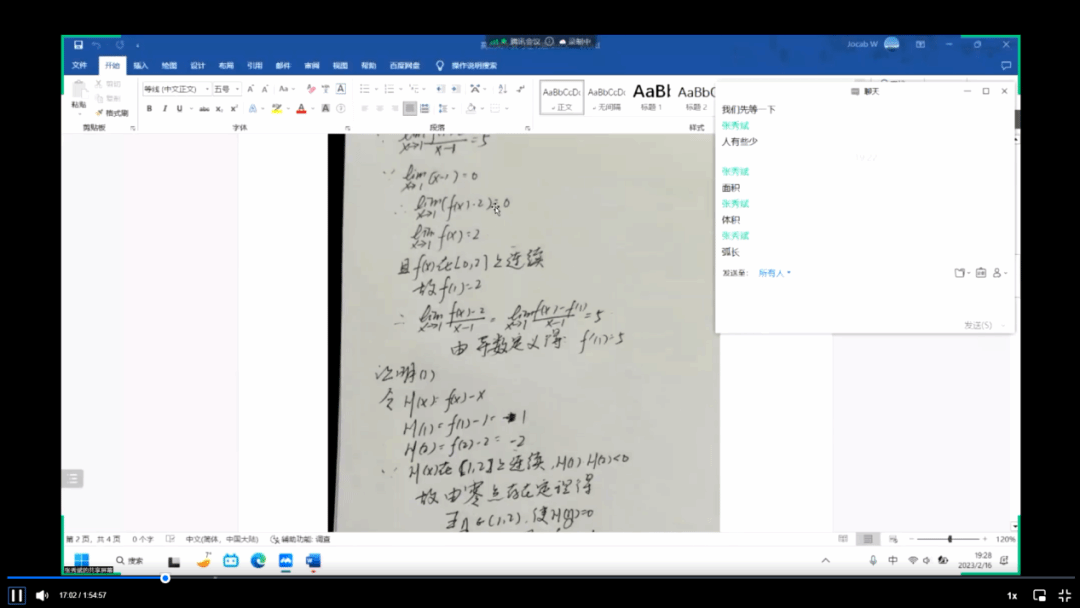 腾讯会议 录制中
Jocab W
文件 开始 插入 绘图 设计 布局 引用 邮件 审阅 视图 帮助 百度网盘 操作说明搜索
粘贴 剪切
复制
格式刷
等线 (中文正文) 五号
B I U abc
AaBbCcD AaBbCcD AaBl AaBbC
正文 无间隔 标题 1 标题 2
剪贴板 字体 段落 样式
聊天
我们先等一下
张秀斌
人有些少
张秀斌
面积
张秀斌
体积
张秀斌
弧长
发送至: 所有人
发送(S)
x→1 x-1 =5
∵ lim x→1 (x-1)=0
∴ lim x→1 (f(x)-2)=0
lim x→1 f(x)=2
且f(x)在[0,2]上连续
故f(1)=2
∴ lim x→1 f(x)-2/x-1 = lim x→1 f(x)-f(1)/x-1 =5
由导数定义得 f'(1)=5
证明(1)
令 H(x)=f(x)-x
H(1)=f(1)-1= 1
H(2)=f(2)-2=-2
∵ H(x)在[1,2]上连续,H(1)·H(2)<0
故由零点存在定理得
∃η∈(1,2),使H(η)=0
第 2 页，共 4 页 0 个字 中文(简体，中国大陆) 辅助功能: 调查
120%
搜索
中
19:28
2023/2/16
张秀斌的共享屏幕
17:02 / 1:54:57
1x